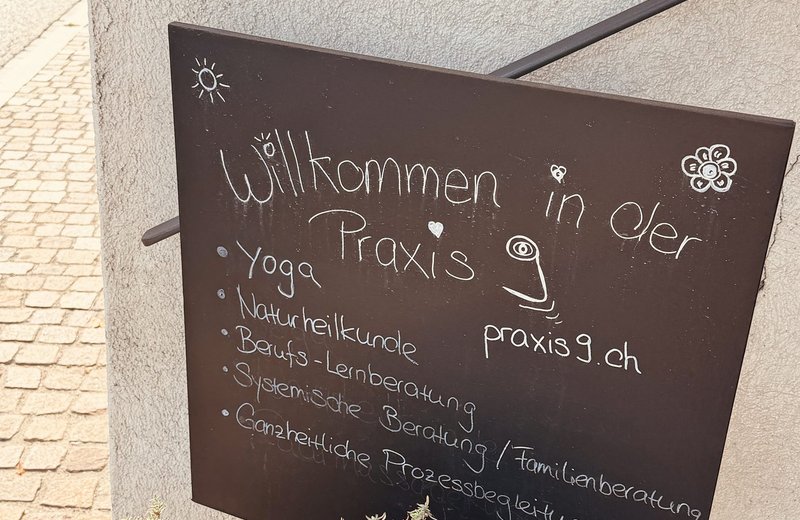 Willkommen in der
Praxis 9
praxis9.ch
• Yoga
• Naturheilkunde
• Berufs-Lernberatung
• Systemische Beratung / Familienberatung
• Ganzheitliche